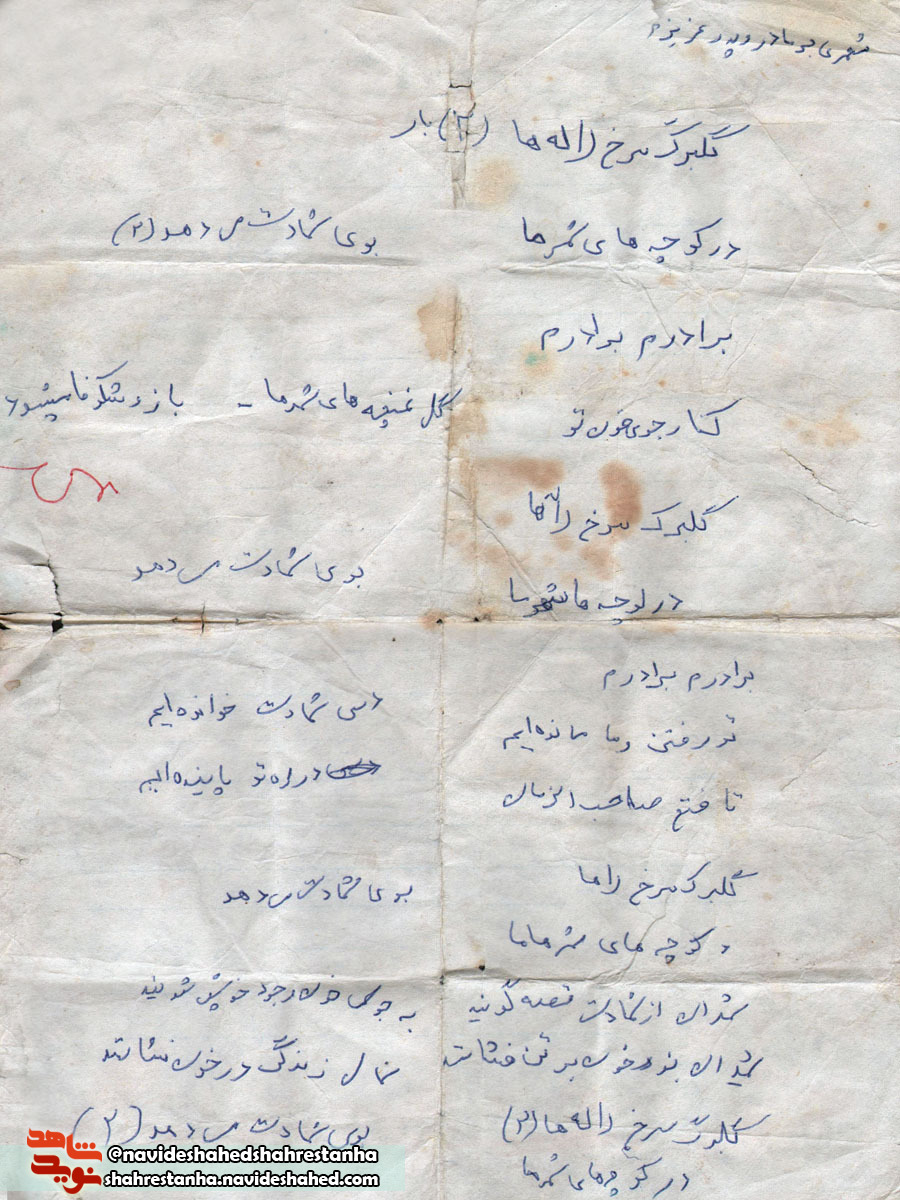 شعری بر مادر و پدر عزیزم
گلبرگ سرخ لاله ها (۲) بار
در کوچه های شهر ما بوی شهادت می دهد (۲)
برادرم برادرم
گل غنچه های شهر ما - باز و شکوفا میشود
کنار جوی خون تو
گلبرگ سرخ لاله ها
بوی شهادت می دهد
در کوچه ما شهر ما
برادرم برادرم
درس شهادت خوانده ایم
تو رفتی و ما مانده ایم
در راه تو پاینده ایم
تا فتح صاحب الزمان
گلبرگ سرخ لاها
بوی شهادت می دهد
در کوچه های شهر ما
شهیدان از شهادت قصه گویند به جوی خون وجود
شهیدان خون بر نهال زندگی در خون نشاندند
گلبرگ سرخ لاله ها (۲) بوی شهادت می دهد (۲)
در کوچه های شهر ما
نوید شاهد
@navideshahedshahrestanha
shahrestanha.navideshahed.com